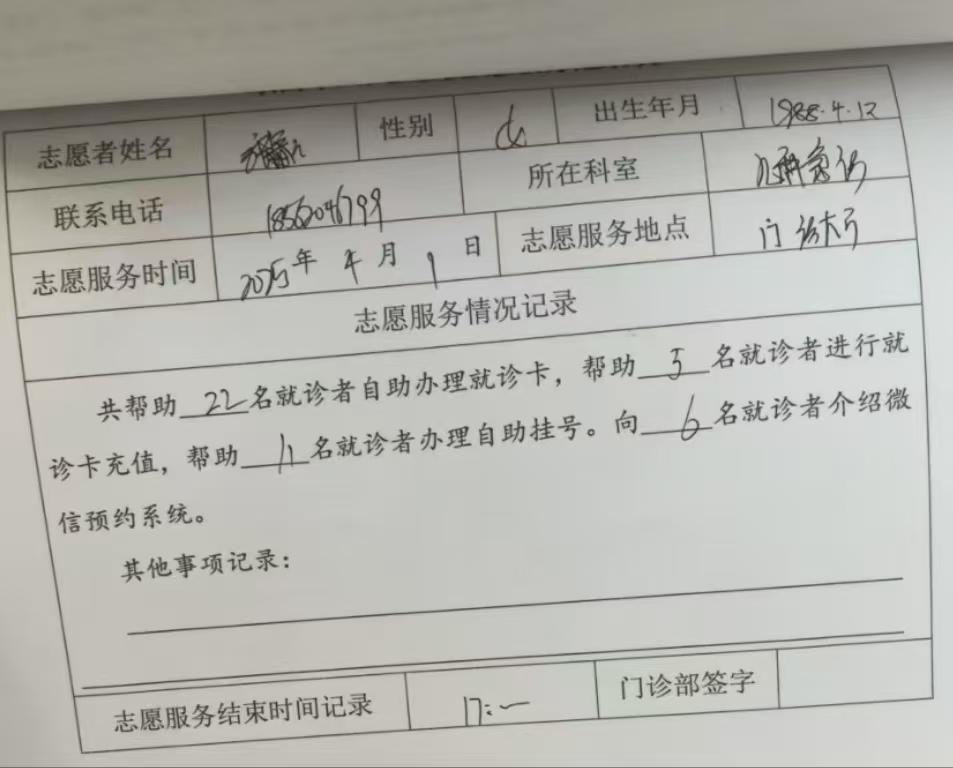 志愿者姓名 性别 女 出生年月 1988.4.12
联系电话 所在科室
志愿服务时间 2025年 4月 1日 志愿服务地点 门诊大厅
志愿服务情况记录
共帮助22名就诊者自助办理就诊卡，帮助5名就诊者进行就
诊卡充值，帮助11名就诊者办理自助挂号。向6名就诊者介绍微
信预约系统。
其他事项记录：
志愿服务结束时间记录 17:一 门诊部签字